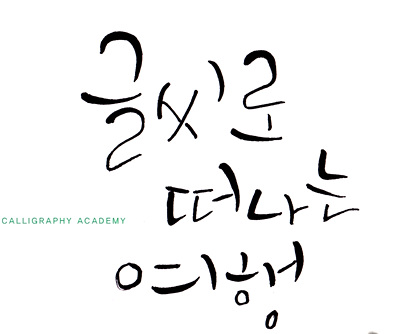 글씨로
떠나는
CALLIGRAPHY ACADEMY
여행